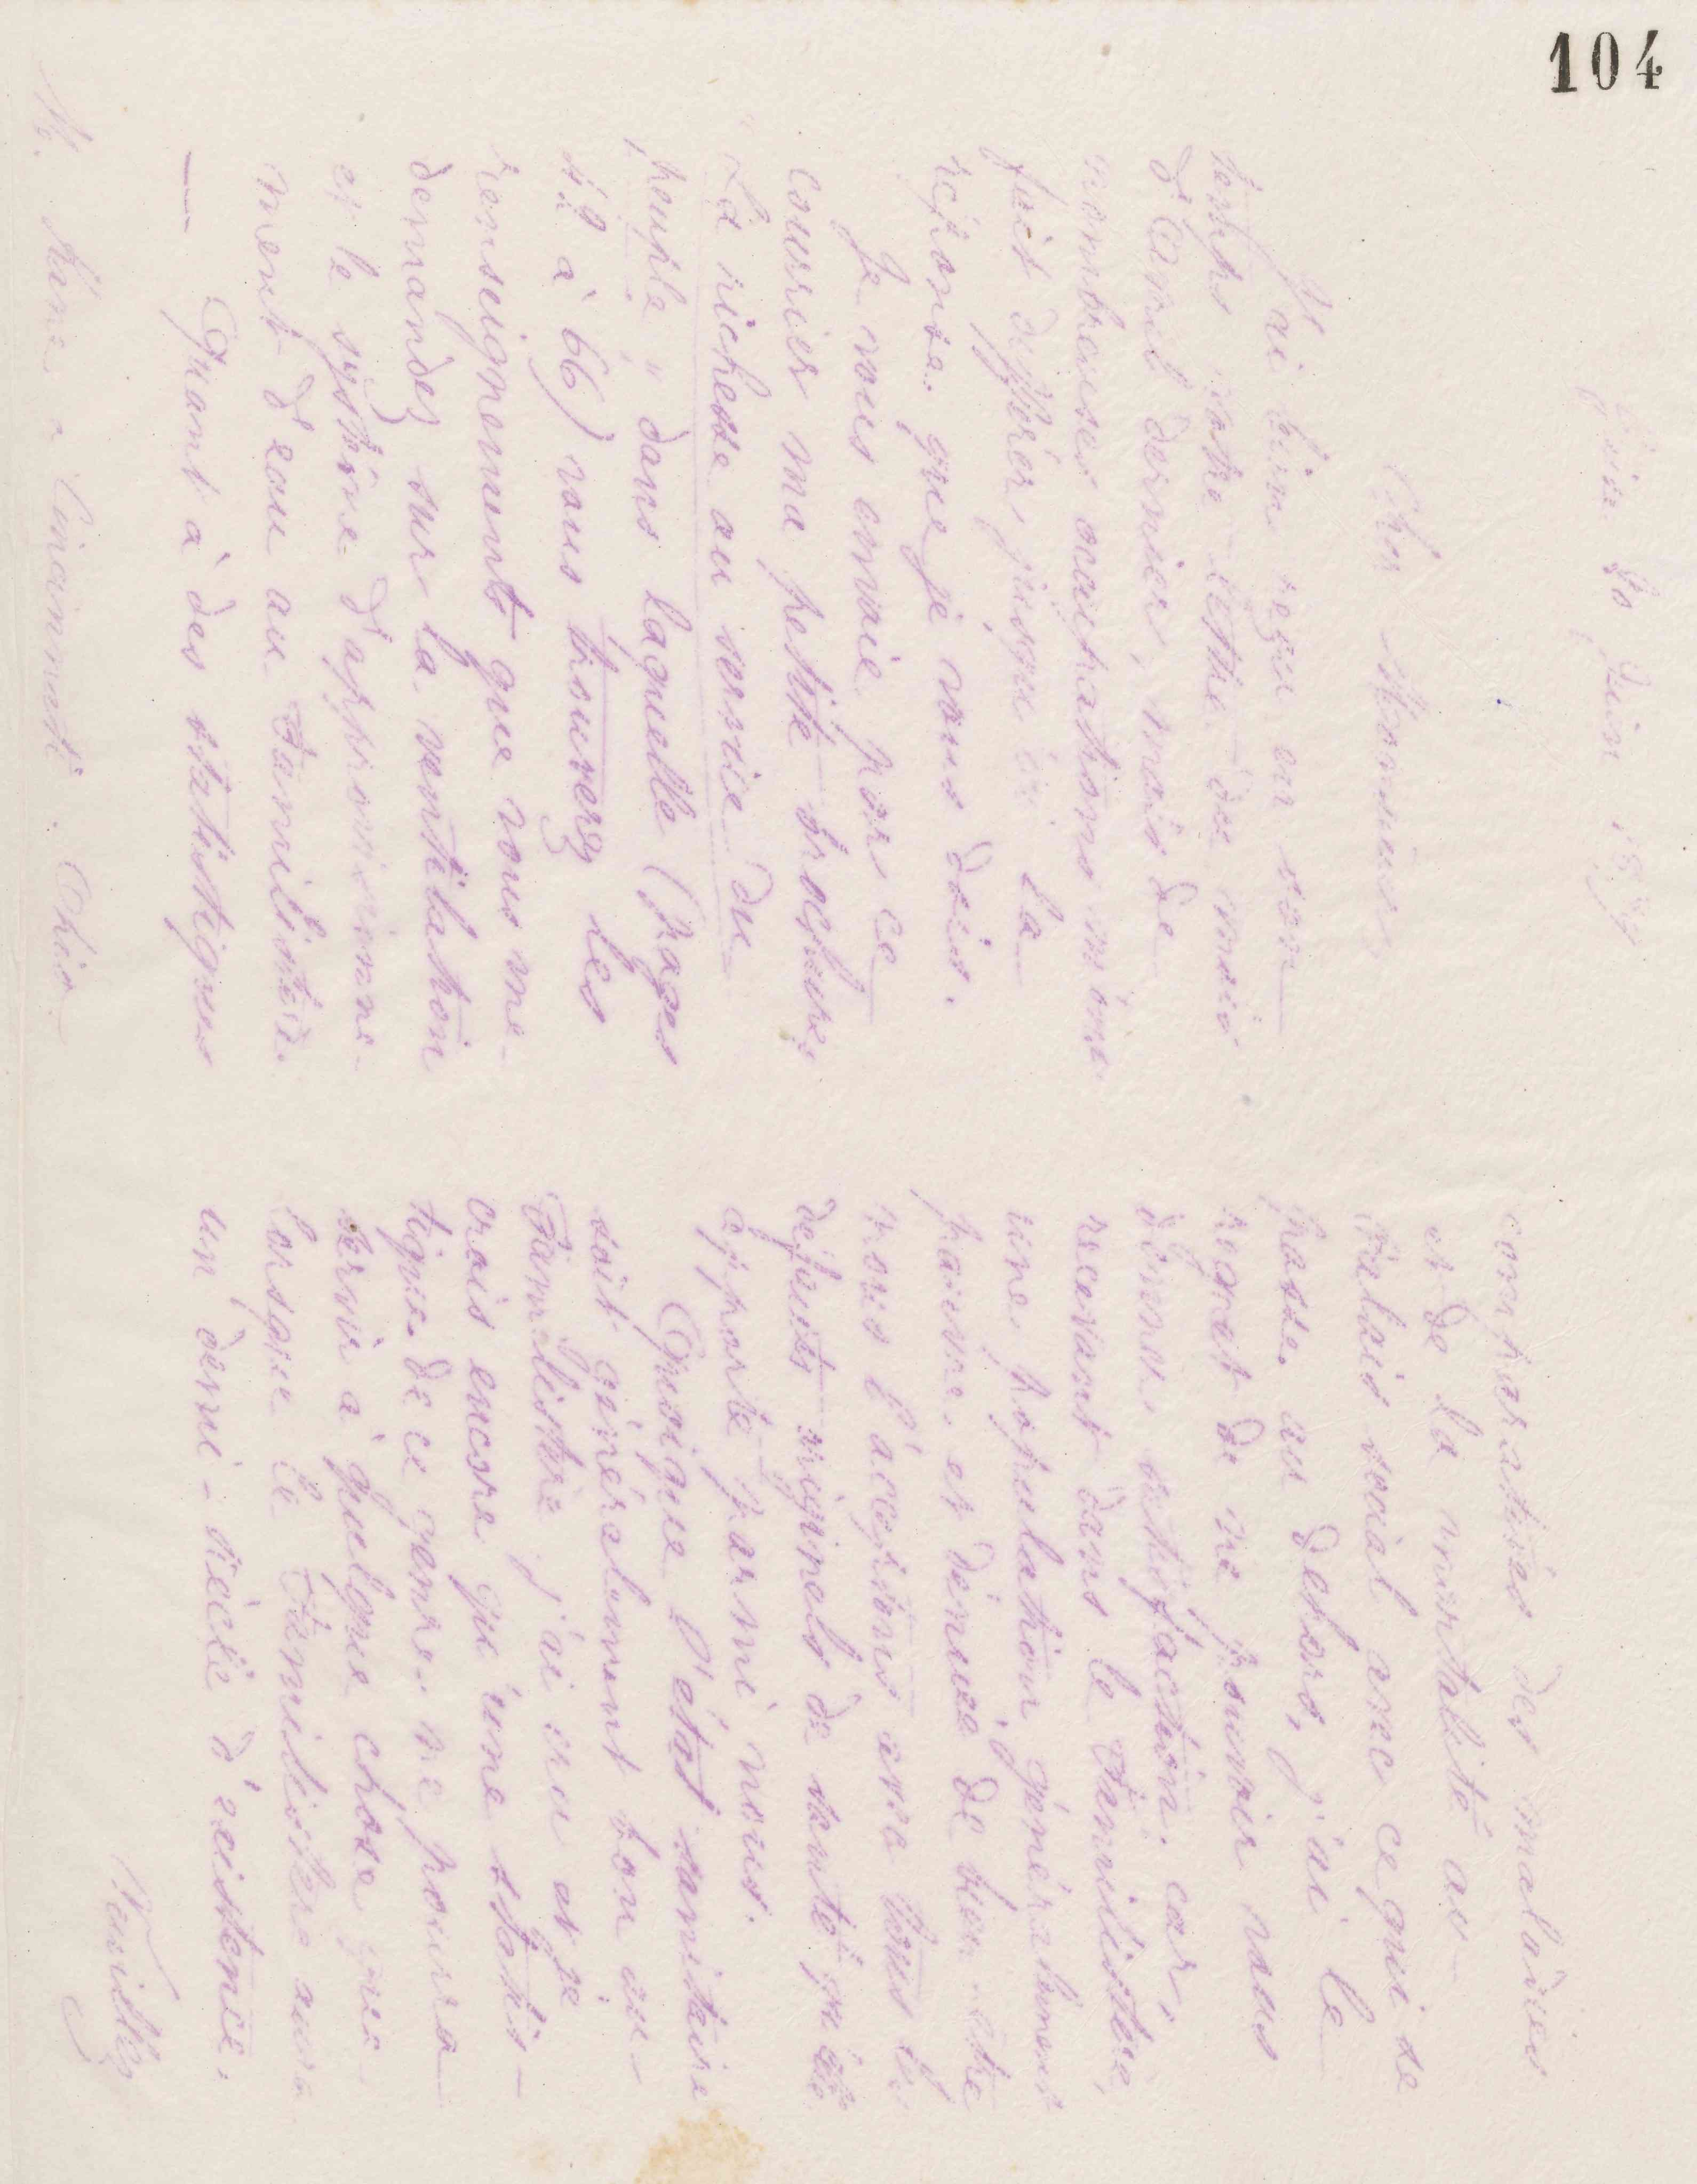 104
Guise 20 Juin 1874
Cher Monsieur,
J'ai bien reçu en son
temps votre lettre du mois
d'Avril dernier, mais de
nombreuses occupations m'ont
fait différer jusqu'ici la
réponse que je vous dois.
Je vous envoie par ce
courrier ma petite brochure
"La richesse au service du
peuple" dans laquelle (pages
52 à 66) vous trouverez les
renseignements que vous me
demandez sur la ventilation
et le système d'approvisionne-
ment d'eau au Familistère.
— Quant à des statistiques
M. Cincinnati. Ohio
comparatives des maladies
et de la mortalité au
Palais social avec ce qui se
passe au dehors, j'ai le
regret de ne pouvoir vous
donner satisfaction. car,
recevant dans le Familistère,
une population généralement
pauvre et dénuée de bien-être
nous l'acceptons avec tous les
défauts originels de santé qu'elle
apporte parmi nous.
Quoique l'état sanitaire
soit généralement bon au
Familistère j'ai cru et je
crois encore qu'une statis-
tique de ce genre ne pourra
servir à quelque chose que
lorsque le Familistère aura
un demi-siècle d'existence.
Veuillez